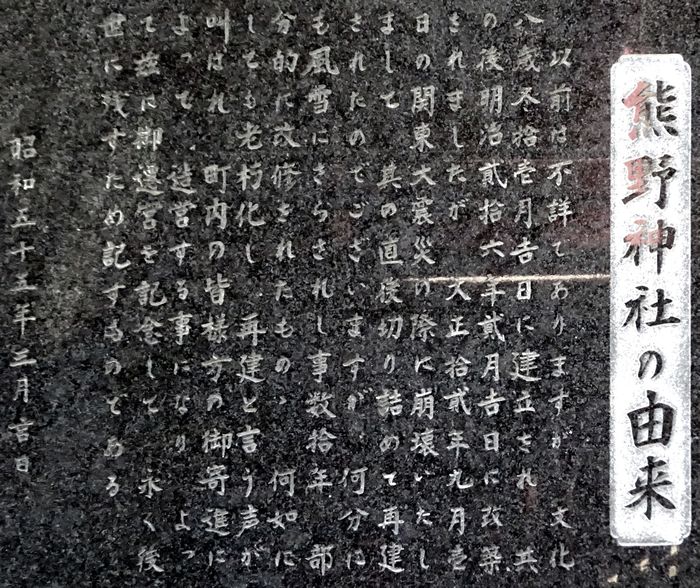 熊野神社の由来
以前は不詳でありますが 文化
八歳冬拾壱月吉日に 建立され 其
の後明治貳拾六年貳月吉日に改築
されましたが 大正拾貳年九月壱
日の関東大震災の際に崩壊いたし
まして 其の直後切り詰めて再建
されたのでございますが 何分に
も風雪にさらされし事数拾年 部
分的に改修されたものゝ 何如に
しても老朽化し 再建と言う声が
叫ばれ 町内の皆様方の御寄進に
よって 造営する事になり よっ
て茲に御遷宮を記念して 永く後
世に残すため記するのである
昭和五十五年三月吉日